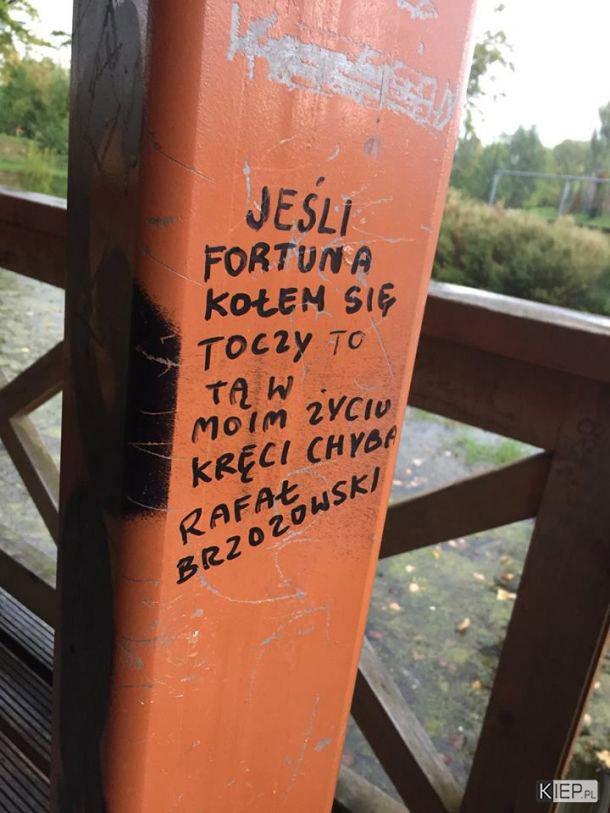 JEŚLI
FORTUNA
KOŁEM SIĘ
TOCZY TO
TĄ W
MOIM ŻYCIU
KRĘCI CHYBA
RAFAŁ
BRZOZOWSKI
KIEP.PL